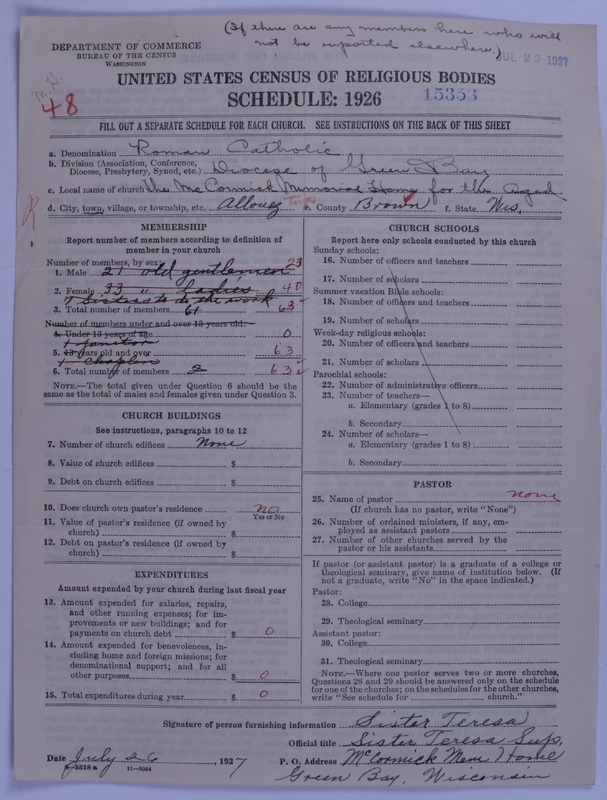 (If there are any members here who will
not be reported elsewhere.)
DEPARTMENT OF COMMERCE
BUREAU OF THE CENSUS
WASHINGTON
JUL 29 1927
48
UNITED STATES CENSUS OF RELIGIOUS BODIES
SCHEDULE: 1926
15353
FILL OUT A SEPARATE SCHEDULE FOR EACH CHURCH. SEE INSTRUCTIONS ON THE BACK OF THIS SHEET
a. Denomination Roman Catholic
b. Division (Association, Conference,
Diocese, Presbytery, Synod, etc.) Diocese of Green Bay
c. Local name of church The McCormick Memorial Home for the Aged
d. City, town, village, or township, etc. Allouez twp e. County Brown f. State Wis,
MEMBERSHIP
Report number of members according to definition of
member in your church
Number of members, by sex:
1. Male 21 old gentlemen 23
2. Female 33 " ladies 40
7 Sisters to do the work
3. Total number of members 61 63
Number of members under and over 13 years old:
4. Under 13 years of age 0
1 janitor
5. 13 years old and over 63
1 Chaplin
6. Total number of members 2 63
NOTE.—The total given under Question 6 should be the
same as the total of males and females given under Question 3.
CHURCH BUILDINGS
See instructions, paragraphs 10 to 12
7. Number of church edifices None
8. Value of church edifices $
9. Debt on church edifices $
10. Does church own pastor's residence no
Yes or No
11. Value of pastor's residence (if owned by
church) $
12. Debt on pastor's residence (if owned by
church) $
EXPENDITURES
Amount expended by your church during last fiscal year
13. Amount expended for salaries, repairs,
and other running expenses; for im-
provements or new buildings; and for
payments on church debt $ 0
14. Amount expended for benevolences, in-
cluding home and foreign missions; for
denominational support; and for all
other purposes $ 0
15. Total expenditures during year $ 0
CHURCH SCHOOLS
Report here only schools conducted by this church
Sunday schools:
16. Number of officers and teachers
17. Number of scholars
Summer vacation Bible schools:
18. Number of officers and teachers
19. Number of scholars
Week-day religious schools:
20. Number of officers and teachers
21. Number of scholars
Parochial schools:
22. Number of administrative officers
23. Number of teachers—
a. Elementary (grades 1 to 8)
b. Secondary
24. Number of scholars—
a. Elementary (grades 1 to 8)
b. Secondary
PASTOR
25. Name of pastor none
(If church has no pastor, write "None")
26. Number of ordained ministers, if any, em-
ployed as assistant pastors
27. Number of other churches served by the
pastor or his assistants
If pastor (or assistant pastor) is a graduate of a college or
theological seminary, give name of institution below. (If
not a graduate, write "No" in the space indicated.)
Pastor:
28. College
29. Theological seminary
Assistant pastor:
30. College
31. Theological seminary
NOTE.—Where one pastor serves two or more churches,
Questions 28 and 29 should be answered only on the schedule
for one of the churches; on the schedules for the other churches,
write "See schedule for church."
Signature of person furnishing information Sister Teresa
Official title Sister Teresa Sup,
Date July 26, 1927 P. O. Address McCormick Mem Home
8-3518 a 11-9084 Green Bay, Wisconsin